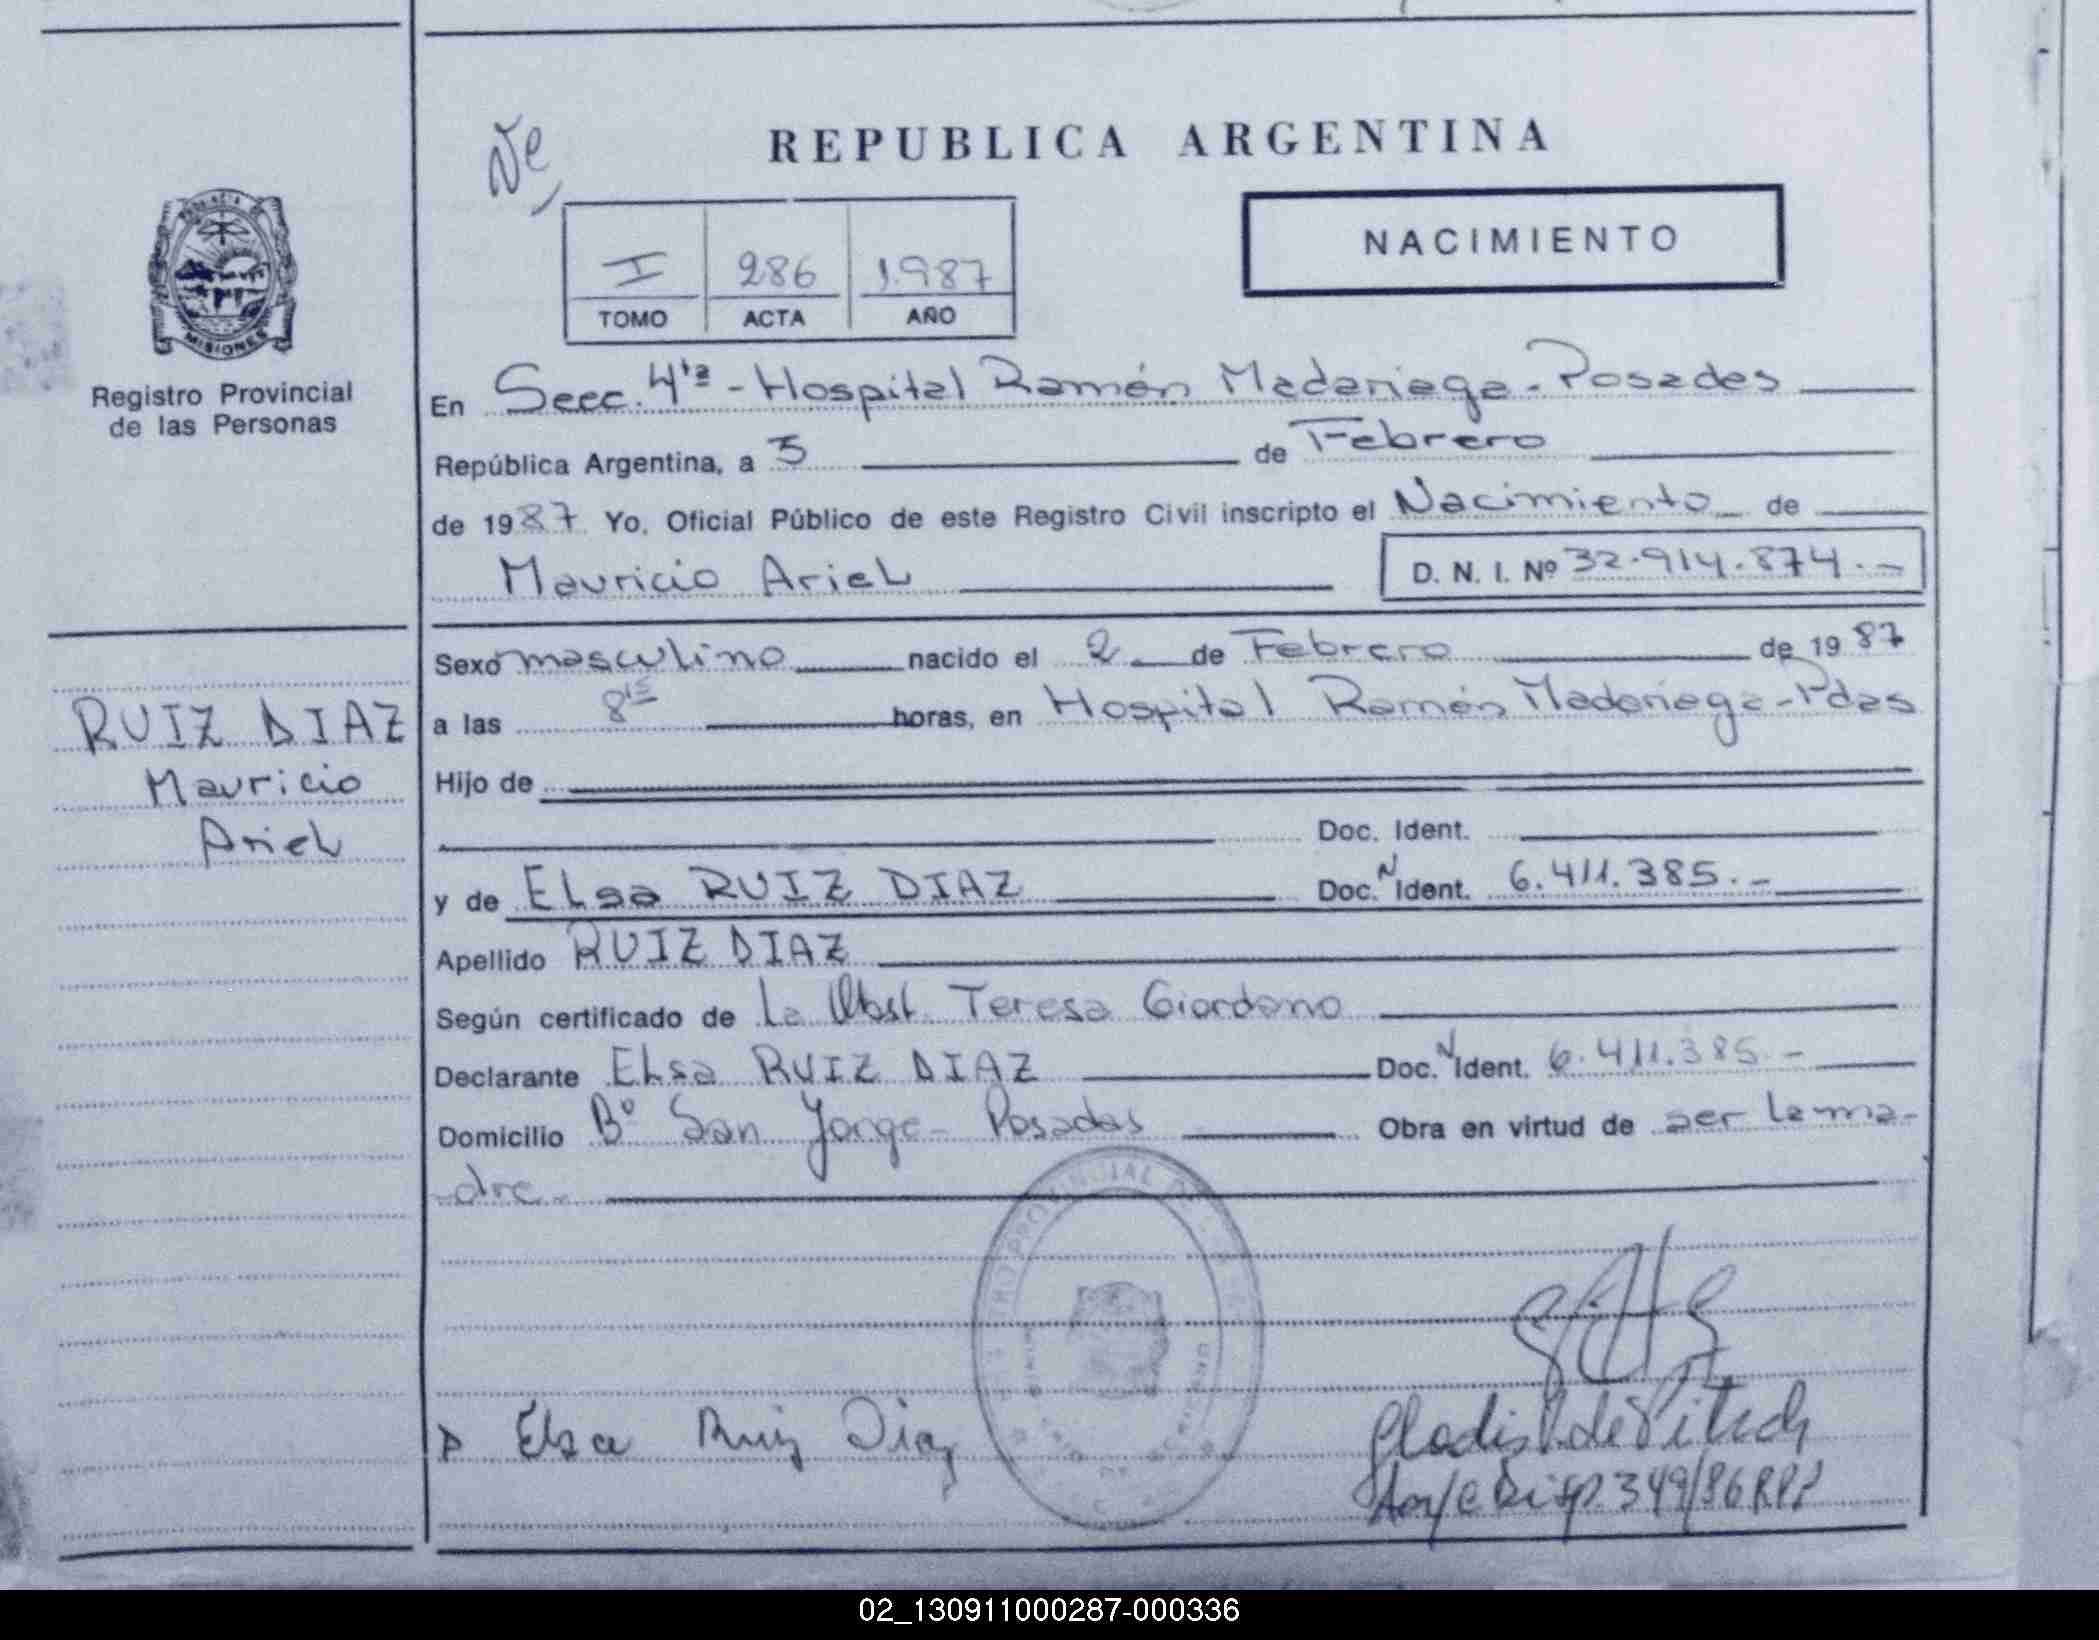 REPUBLICA ARGENTINA
NACIMIENTO
I 286 1.987
TOMO ACTA AÑO
MISIONES
Registro Provincial
de las Personas
RUIZ DIAZ
Mauricio
Ariel
En Secc. 4ta - Hospital Ramón Madariaga - Posadas
República Argentina, a 3 de Febrero
de 1987 Yo, Oficial Público de este Registro Civil inscripto el Nacimiento de
Mauricio Ariel D. N. I. Nº 32.914.874.-
Sexo masculino nacido el 2 de Febrero de 1987
a las 8 horas, en Hospital Ramón Madariaga - Pdas
Hijo de
Doc. Ident.
y de Elsa RUIZ DIAZ Doc. N Ident. 6.411.385.-
Apellido RUIZ DIAZ
Según certificado de La Obst. Teresa Giordano
Declarante Elsa RUIZ DIAZ Doc. N Ident. 6.411.385.-
Domicilio Bº San Jorge - Posadas Obra en virtud de ser la ma-
-dre-
Elsa Ruiz Diaz
349/86 RPP
02_130911000287-000336